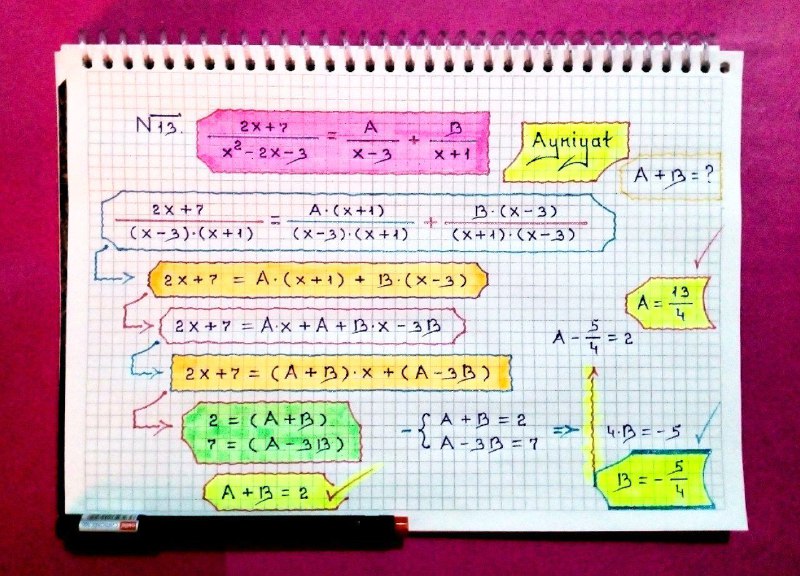 №13. (2x+7)/(x²-2x-3) = A/(x-3) + B/(x+1)
Ayniyat
A+B=?
(2x+7)/((x-3)·(x+1)) = (A·(x+1))/((x-3)·(x+1)) + (B·(x-3))/((x+1)·(x-3))
2x+7 = A·(x+1) + B·(x-3)
2x+7 = A·x + A + B·x - 3B
2x+7 = (A+B)·x + (A-3B)
2 = (A+B)
7 = (A-3B)
A+B = 2
- { A+B = 2
A-3B = 7 =>
4·B = -5
B = -5/4
A - 5/4 = 2
A = 13/4